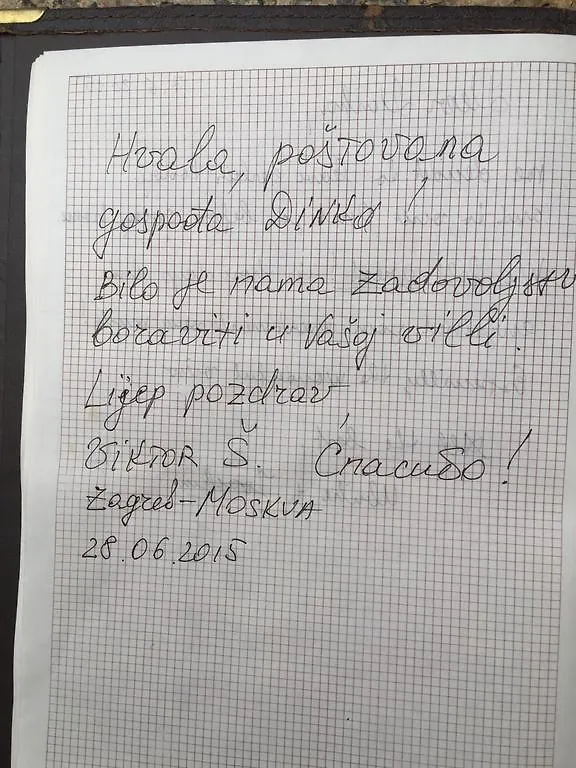 Hvala, poštovana
gospođa DiNKA!
Bilo je nama zadovoljstv
boraviti u Vašoj villi.
Lijep pozdrav,
ViKTOR Š. Спасибо!
Zagreb-MOSKVA
28.06.2015